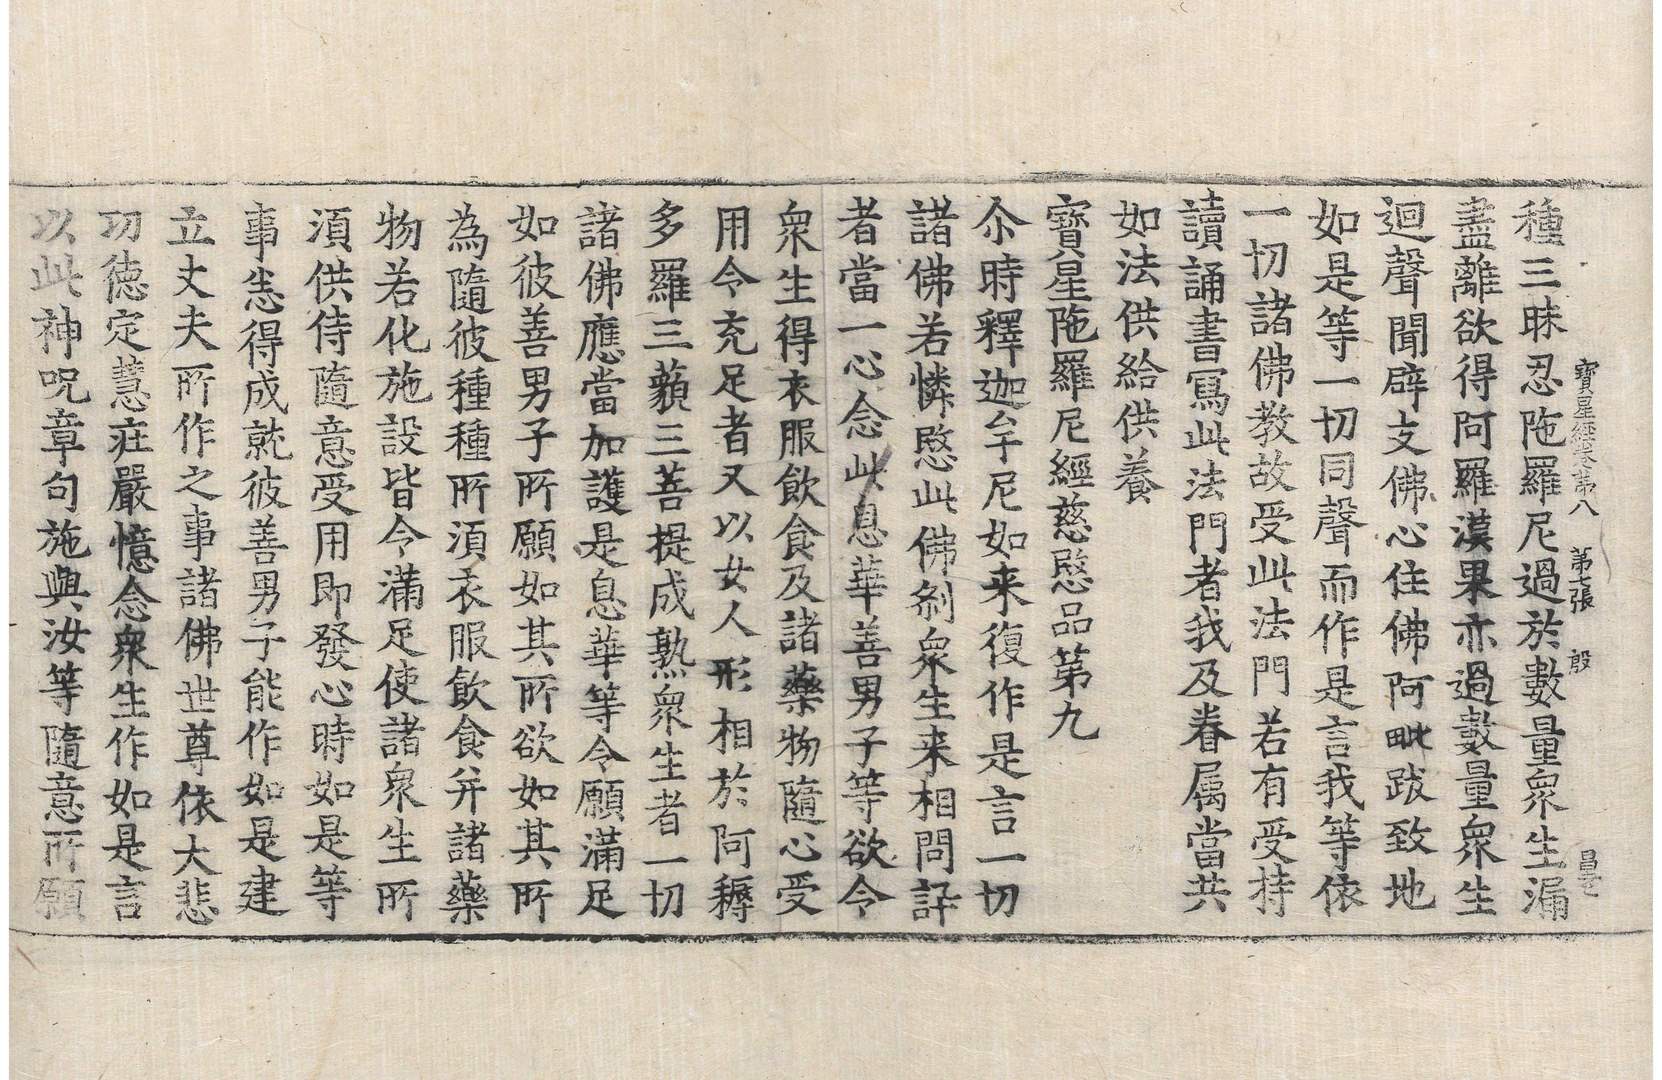 寶星經卷第八 第七張 殷 昌之
種三昧忍陁羅尼過於數量衆生漏
盡離欲得阿羅漢果亦過數量衆生
迴聲聞辟支佛心住佛阿毗跋致地
如是等一切同聲而作是言我等依
一切諸佛教故受此法門若有受持
讀誦書寫此法門者我及眷属當共
如法供給供養
寶星陁羅尼經慈愍品第九
尒時釋迦牟尼如来復作是言一切
諸佛若憐愍此佛刹衆生来相問訊
者當一心念此息華善男子等欲令
衆生得衣服飲食及諸藥物隨心受
用令充足者又以女人形相於阿耨
多羅三藐三菩提成熟衆生者一切
諸佛應當加護是息華等令願滿足
如彼善男子所願如其所欲如其所
為隨彼種種所須衣服飲食并諸藥
物若化施設皆令滿足使諸衆生所
須供侍隨意受用即發心時如是等
事恙得成就彼善男子能作如是建
立丈夫所作之事諸佛世尊依大悲
功德定慧莊嚴憶念衆生作如是言
以此神呪章句施與汝等隨意所願